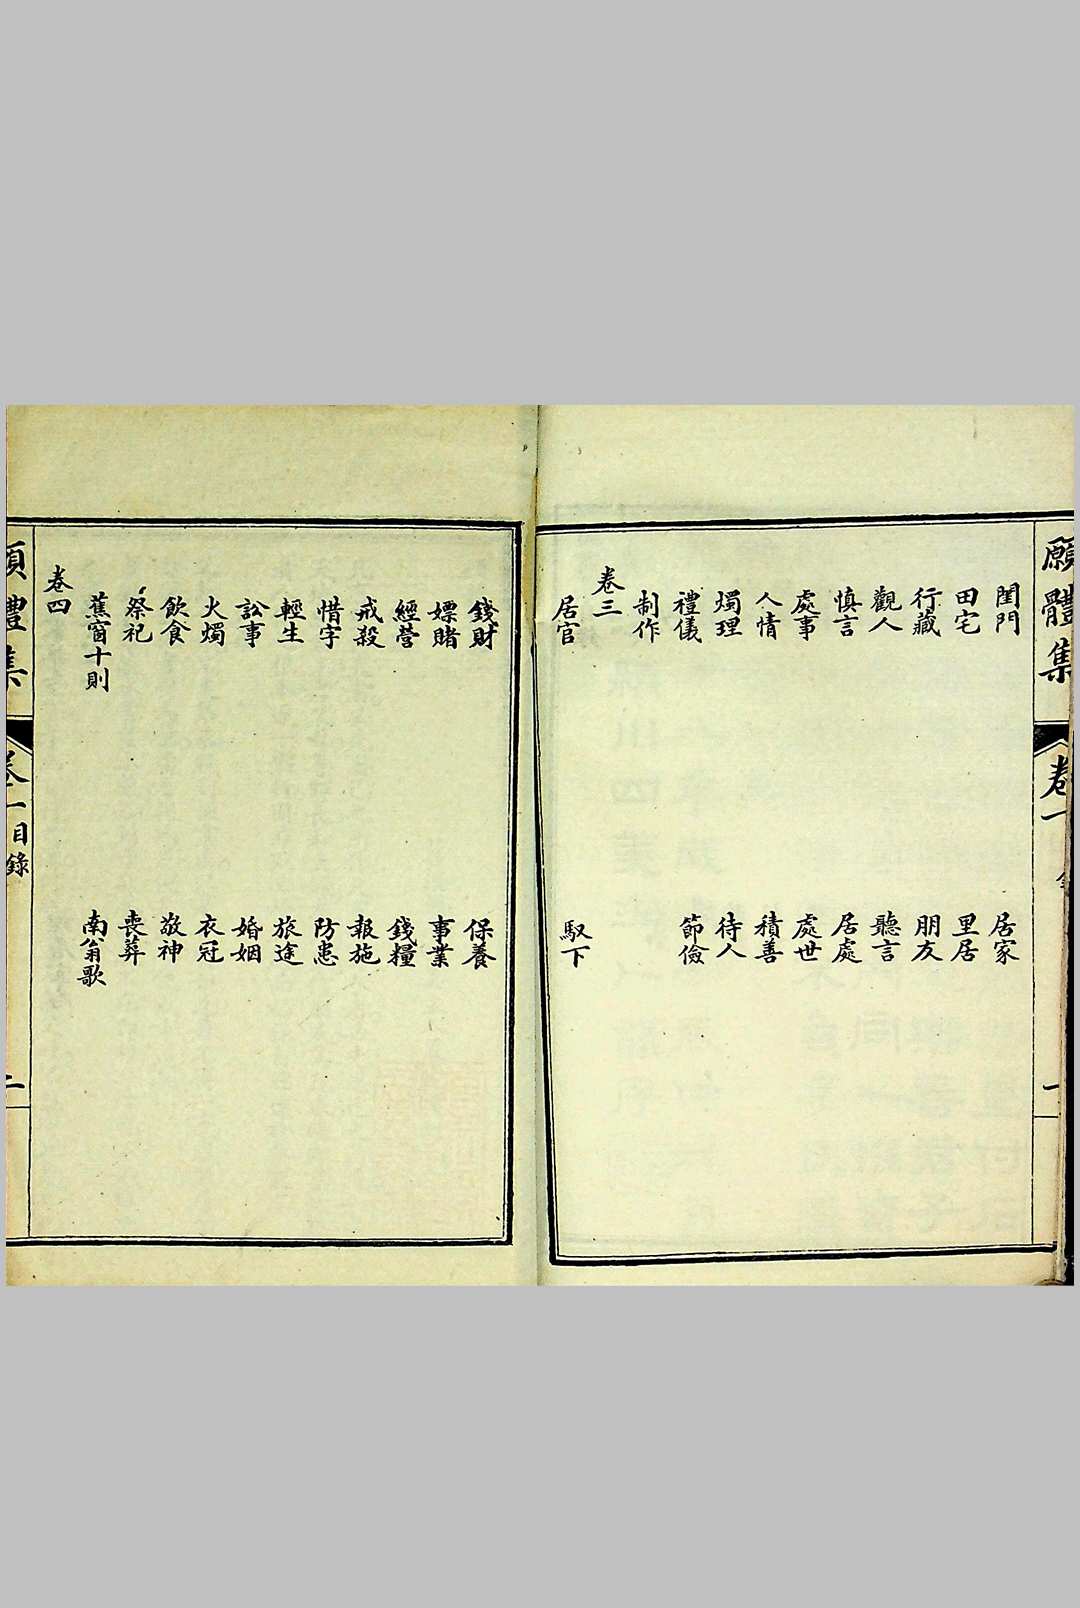 願體集 卷一 一
閨門 居家
田宅 里居
行藏 朋友
觀人 聽言
慎言 居處
處事 處世
人情 積善
燭理 待人
禮儀 節儉
制作
卷三
居官 馭下
錢財 保養
嫖賭 事業
經營 錢糧
戒殺 報施
惜字 防患
輕生 旅途
訟事 婚姻
火燭 衣冠
飲食 敬神
祭祀 喪葬
蕉窗十則 南翁歌
卷四
願體集 卷一目錄 二